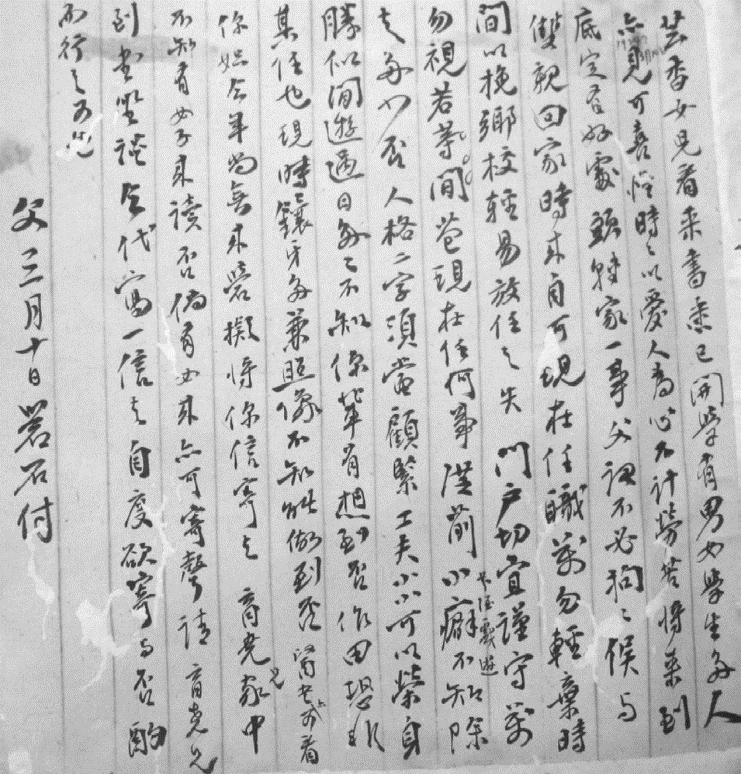 芸香女兒看來書悉已開學有男女學生多人
亦見可喜惟時時以愛人為心不計勞苦將來到
底定有好處 歸家一事父謂不必拘拘候与
雙親回家時來自可現在任職萬勿輕棄時
間以挽鄉校輕易放任之失 門戶切宜謹守万
勿視若等閒芸現在任何事從前小癖不知除
去多少否人格二字須當顧緊工夫小小可以榮身
勝似閒遊過日多多不知你輩肯想到否作田恐非
某任也現時鑲牙多兼照像不知能做到否
你 今年尚無來 擬將你信寄之 育堯兄家中
不知有女子來讀否倘有女來亦可寄聲請育堯兄
到 坐談 今代寫一信之自度欲寄与否酌
而行之可也
父三月十日 石付